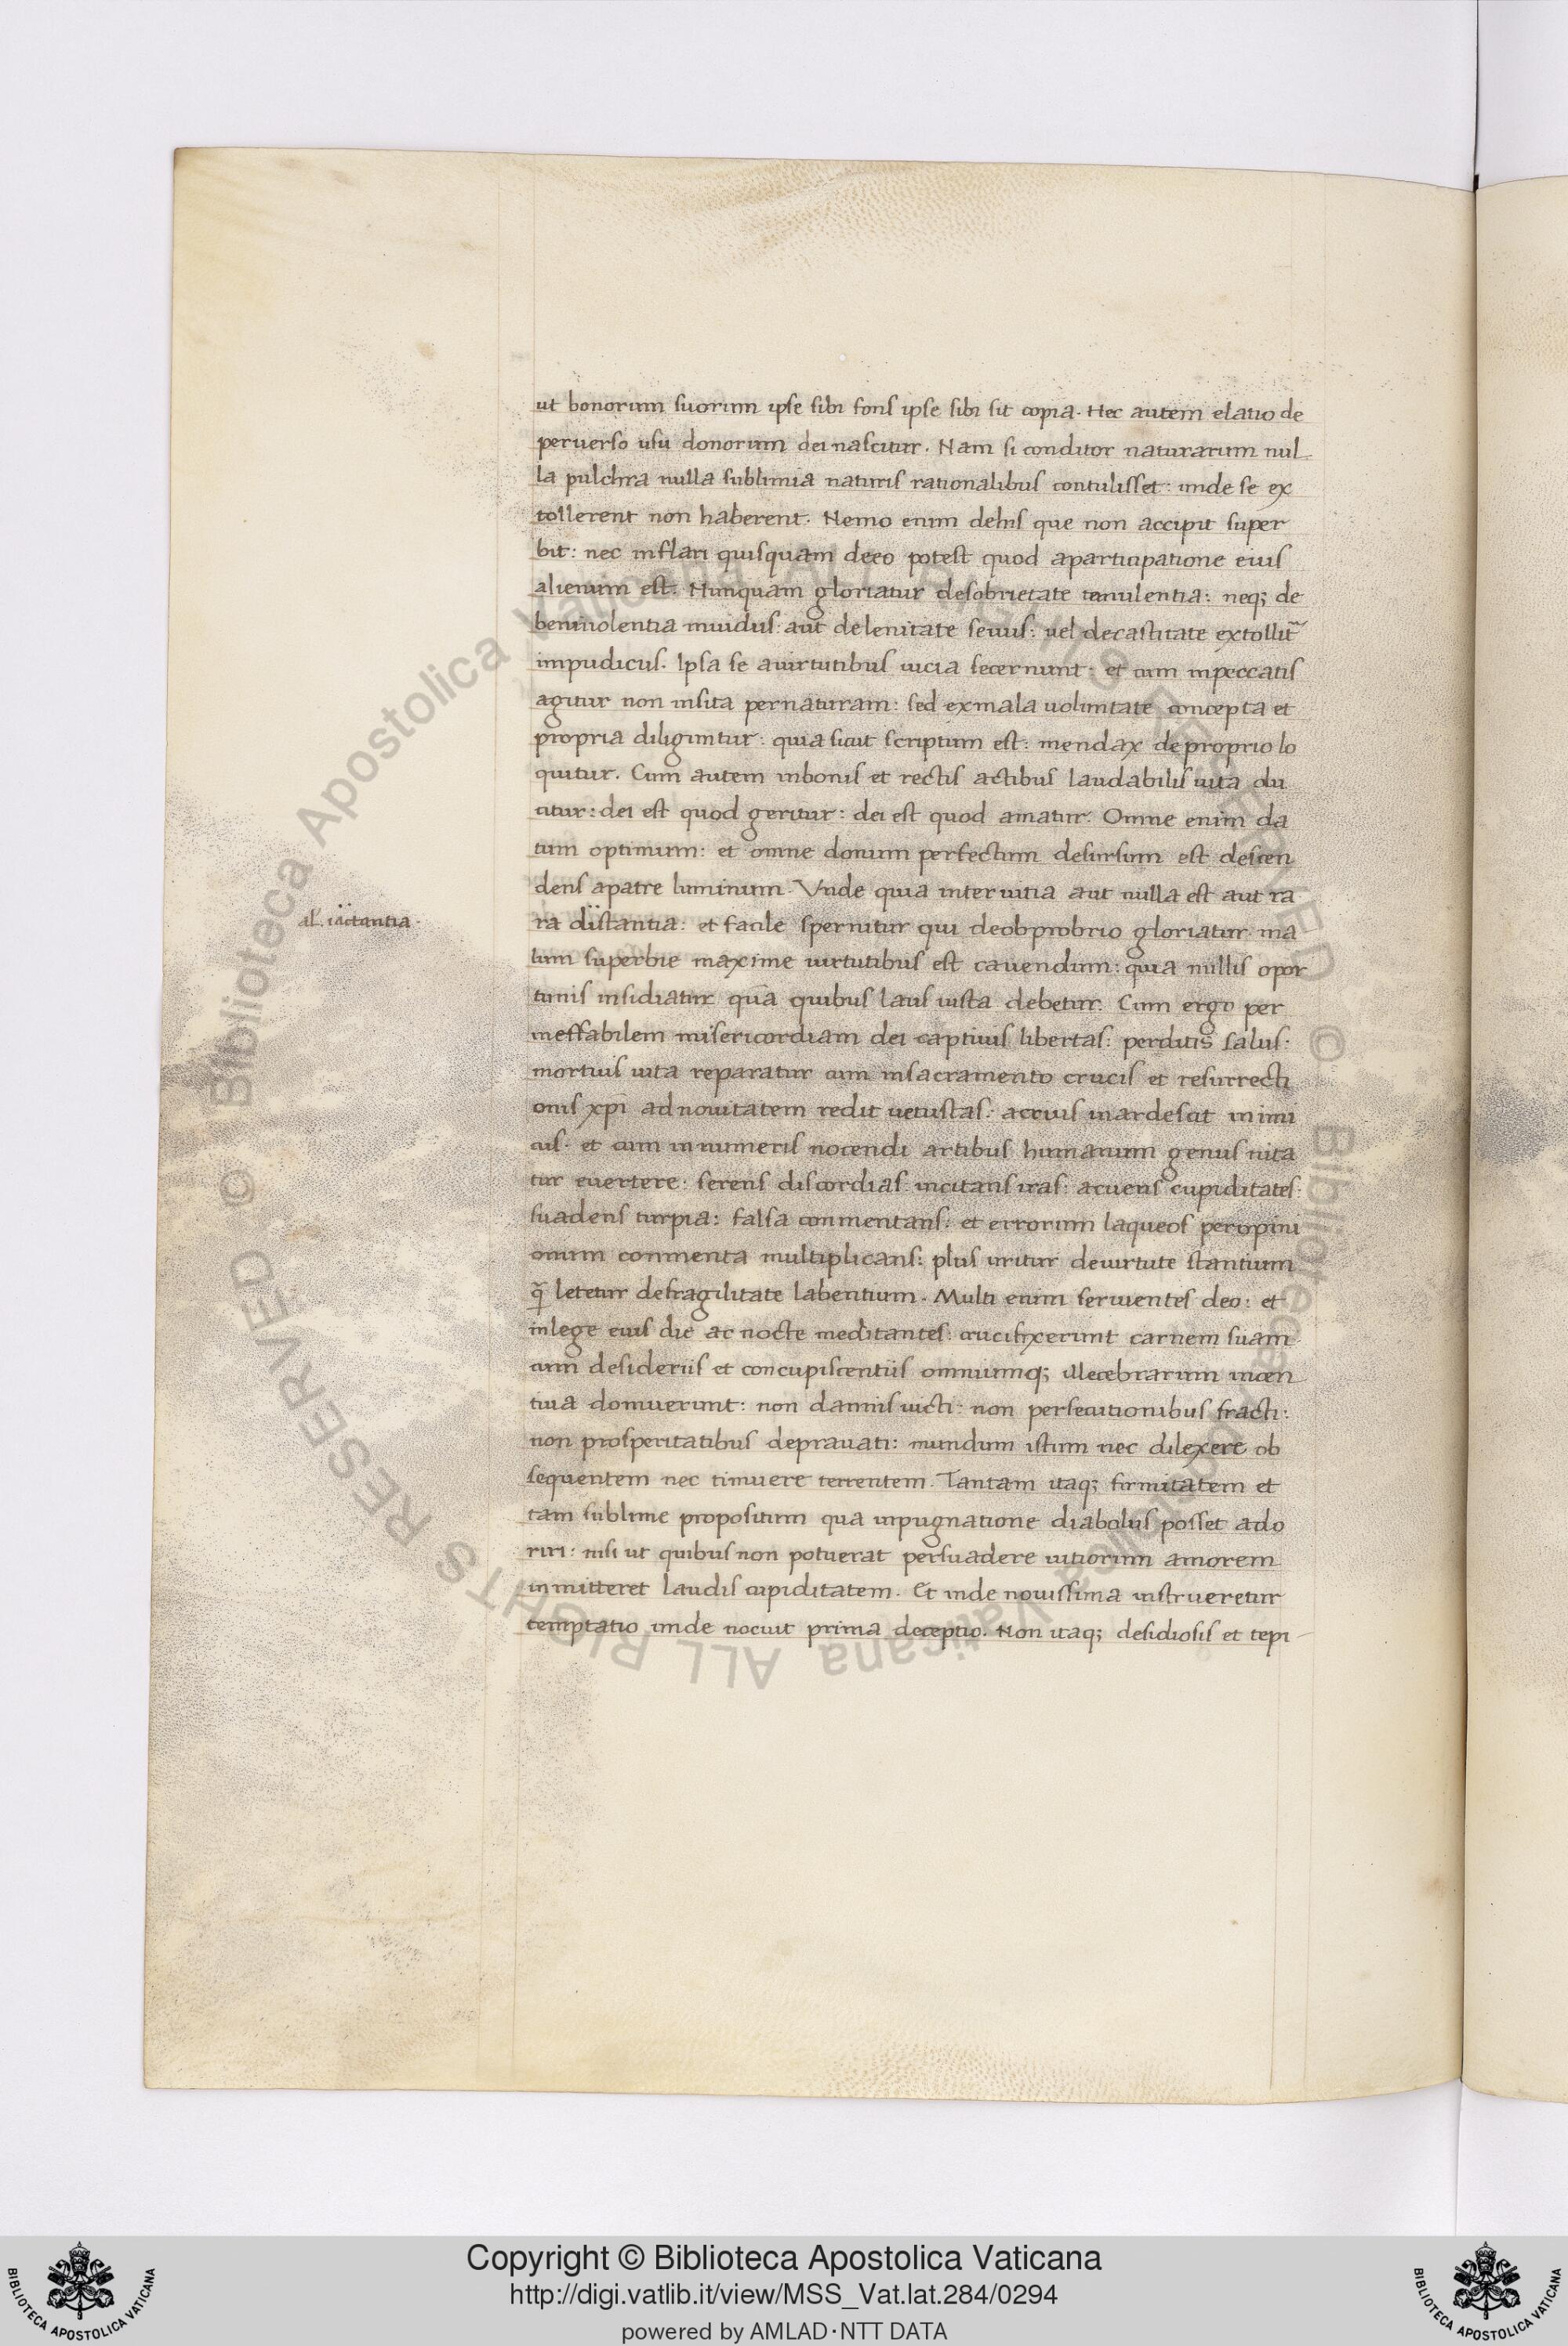 ut bonorum suorum ipse sibi fons ipse sibi sit copia. Hec autem elatio de
peruerso usu donorum dei nascitur. Nam si conditor naturarum nul
la pulchra nulla sublimia naturis rationalibus contulisset: unde se ex
tollerent non haberent. Nemo enim dehis que non accipit super
bit: nec inflari quisquam deeo potest quod aparticipatione eius
alienum est. Nunquam gloriatur desobrietate temulentia: neq; de
beniuolentia inuidus: aut delenitate seuus: uel decastitate extollit̃
impudicus. Ipsa se auirtutibus uicia secernunt: et cum inpeccatis
agitur non insita pernaturam: sed exmala uoluntate concepta et
propria diliguntur: quia sicut scriptum est: mendax deproprio lo
quitur. Cum autem inbonis et rectis actibus laudabilis uita du
citur: dei est quod geritur: dei est quod amatur. Omne enim da
tum optimum: et omne donum perfectum desursum est descen
dens apatre luminum. Vnde quia inter uitia aut nulla est aut ra
al. iactantia.
ra distantia: et facile spernitur qui deobprobrio gloriatur. ma
lum superbie maxime uirtutibus est cauendum: quia nullis opor
tunis insidiatur qua quibus laus iusta debetur. Cum ergo per
ineffabilem misericordiam dei captiuis libertas: perditis salus.
mortuis uita reparatur cum insacramento crucis et resurrecti
onis xp̄i ad nouitatem redit uetustas: acrius inardescit inimi
cus. et cum innumeris nocendi artibus humanum genus nita
tur euertere: serens discordias: incitans iras: acuens cupiditates:
suadens turpia: falsa conmentans: et errorum laqueos peropini
onum conmenta multiplicans: plus uritur deuirtute stantium
q̃ letetur defragilitate labentium. Multi enim seruientes deo: et
inlege eius die ac nocte meditantes: crucifixerunt carnem suam
cum desideriis et concupiscentiis omniumq; illecebrarum incen
tiua domuerunt: non damnis uicti: non persecutionibus fracti:
non prosperitatibus deprauati: mundum istum nec dilexere ob
sequentem nec timuere terrentem. Tantam itaq; firmitatem et
tam sublime propositum qua inpugnatione diabolus posset ado
riri: nisi ut quibus non potuerat persuadere uitiorum amorem
inmitteret laudis cupiditatem. Et inde nouissima instrueretur
temptatio unde nocuit prima deceptio. Non itaq; desidiosis et tepi
© Biblioteca Apostolica Vaticana ALL RIGHTS RESERVED © Biblioteca Apostolica Vaticana ALL RIGHTS RESERVED
Copyright © Biblioteca Apostolica Vaticana
http://digi.vatlib.it/view/MSS_Vat.lat.284/0294
powered by AMLAD·NTT DATA
BIBLIOTECA APOSTOLICA VATICANA
BIBLIOTECA APOSTOLICA VATICANA